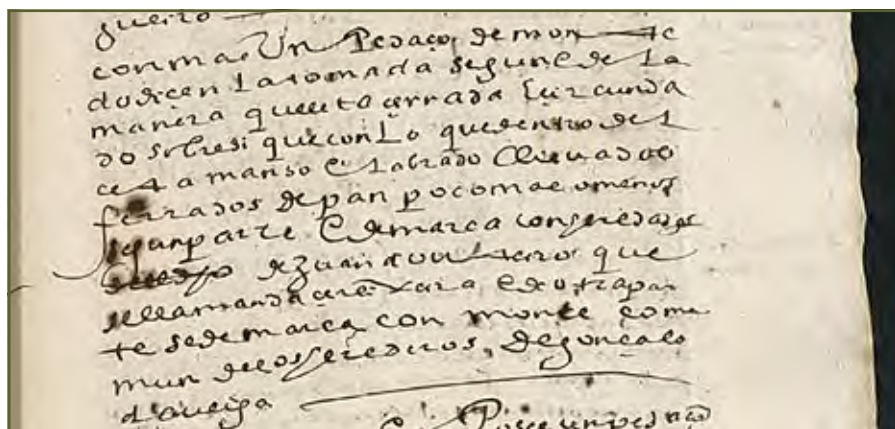 gueiro
con mas Un Pedaço de monte
do dicen La tomada segun e de La
manera que esta cerrada E circunda
do sobre si que con Lo que dentro del
esta manso E Labrado lleva dos
ferrados de pan poco mas o menos
segun parte E demarca con heredades
de Juan do outeiro que
se llaman da E de otra par
te se demarca con monte comu
mun de los herederos, de gonçalo
da veiga
Posee un pedaço